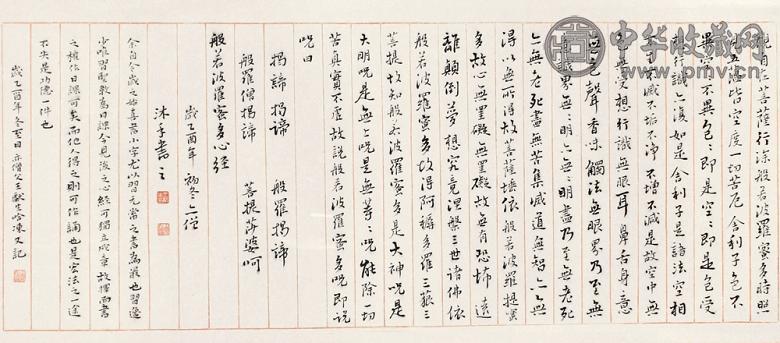 觀自在菩薩行深般若波羅蜜多時照
五蘊皆空度一切苦厄舍利子色不
異空空不異色々即是空々即是色受
想行識亦復如是舍利子是諸法空相
不生不滅不垢不淨不增不減是故空中無
色無受想行識無眼耳鼻舌身意
無色聲香味觸法無眼界乃至無
意識界無々明亦無々明盡乃至無老死
亦無老死盡無苦集滅道無智亦無
得以無所得故菩提薩埵依般若波羅蜜
多故心無罣礙無罣礙故無有恐怖遠
離顛倒夢想究竟涅槃三世諸佛依
般若波羅蜜多故得阿耨多羅三藐三
菩提故知般若波羅蜜多是大神咒是
大明咒是無上咒是無等々咒能除一切
苦真實不虛故說般若波羅蜜多咒即說
咒曰
揭諦 揭諦 般羅揭諦
般羅僧揭諦 菩提莎婆呵
般若波羅蜜多心經
歲乙酉年 初冬亦僧
沐手書之
余自今歲之始喜書小字尤以習元常之書為最也習
少唯習聖教為日課今見後之心經可獨立成章故揮而書
之作日課可矣而他人得之則可作誦也是宏法之一途
不失是功德一件也
歲乙酉年冬至日亦僧凍又記
中华收藏网
www.pmv.cn